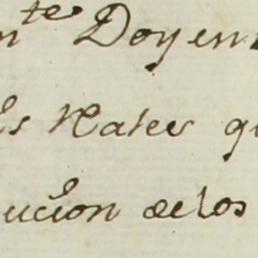 nte Doy en
es Rales q
ucion delos